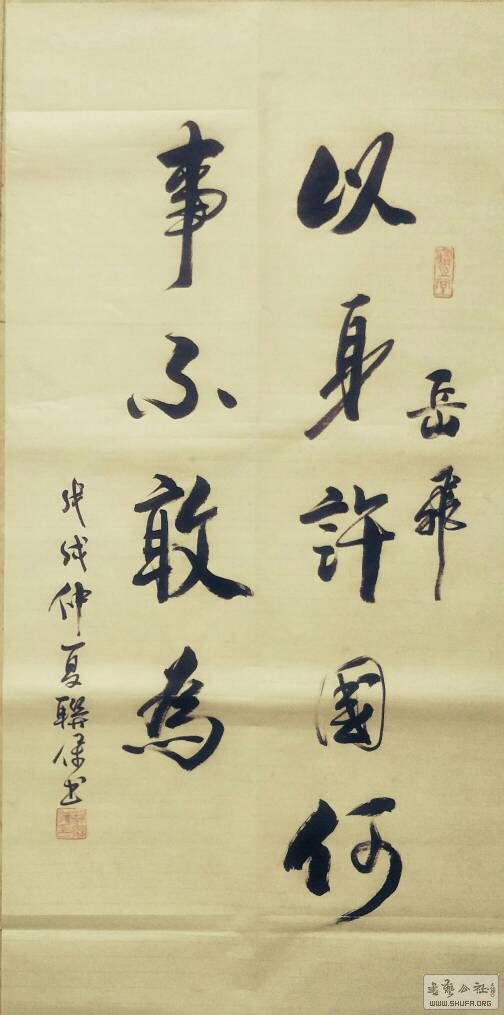 岳飛
以身許國何
事不敢為
戊戌仲夏聯保书
书艺公社
WWW.SHUFA.ORG